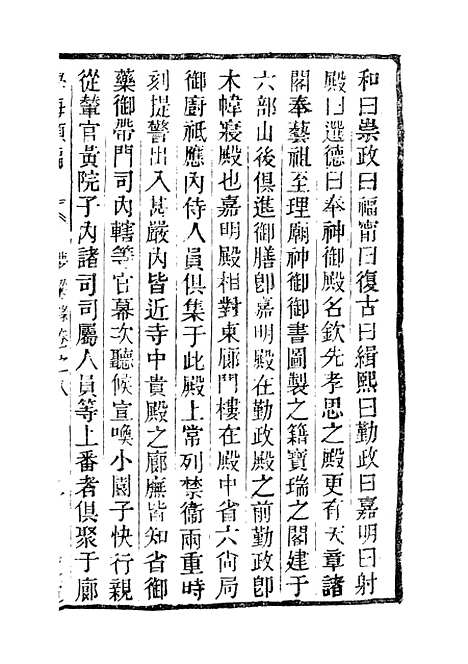 和曰崇政曰福甯曰復古曰緝熙曰勤政曰嘉明曰射
殿曰選德曰奉神御殿名欽先孝思之殿更有天章諸
閣奉藝祖至理廟神御御書圖製之籍寶瑞之閣建于
六部山後俱進御膳卽嘉明殿在勤政殿之前勤政卽
木幃寢殿也嘉明殿相對東廊門樓在殿中省六尙局
御廚祗應內侍人員俱集于此殿上常列禁衞兩重時
刻提警出入甚嚴內皆近寺中貴殿之廊廡皆知省御
藥御帶門司內轄等官幕次聽候宣喚小園子快行親
從輦官黃院子內諸司司屬人員等上番者俱聚于廊